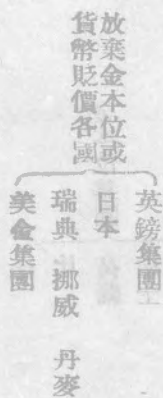 放棄金本位或
貨幣貶價各國
英鎊集團
日本
瑞典 挪威 丹麥
美金集團